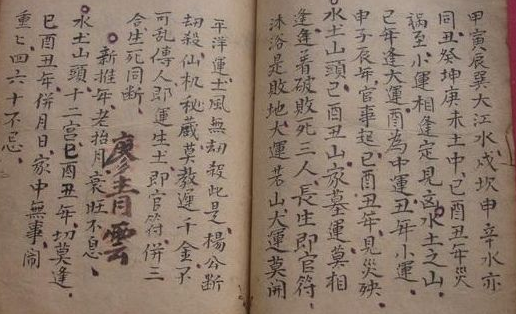 甲寅辰巽大江水戌坎申辛水亦
同丑癸坤庚未土中己酉丑年災
禍至小運相逢定見凶水土之山
己年逢大運酉為中運丑年小運
申子辰年官事起己酉丑年見災殃
水土山頭己酉丑山家墓運莫相
逢逢著破敗死三人長生即官符
沐浴是敗地大運若山大運莫開
平洋運土風無劫殺此是楊公斷
劫殺仙机秘藏莫教遲千金不
可乱傳人即運生土即官符併三
合生死同斷
新推年老抬月衰旺不息
廖青雲
水土山頭十二宮己酉丑年切莫逢
己酉丑年併月日家中無事鬧
重七四六十不忌